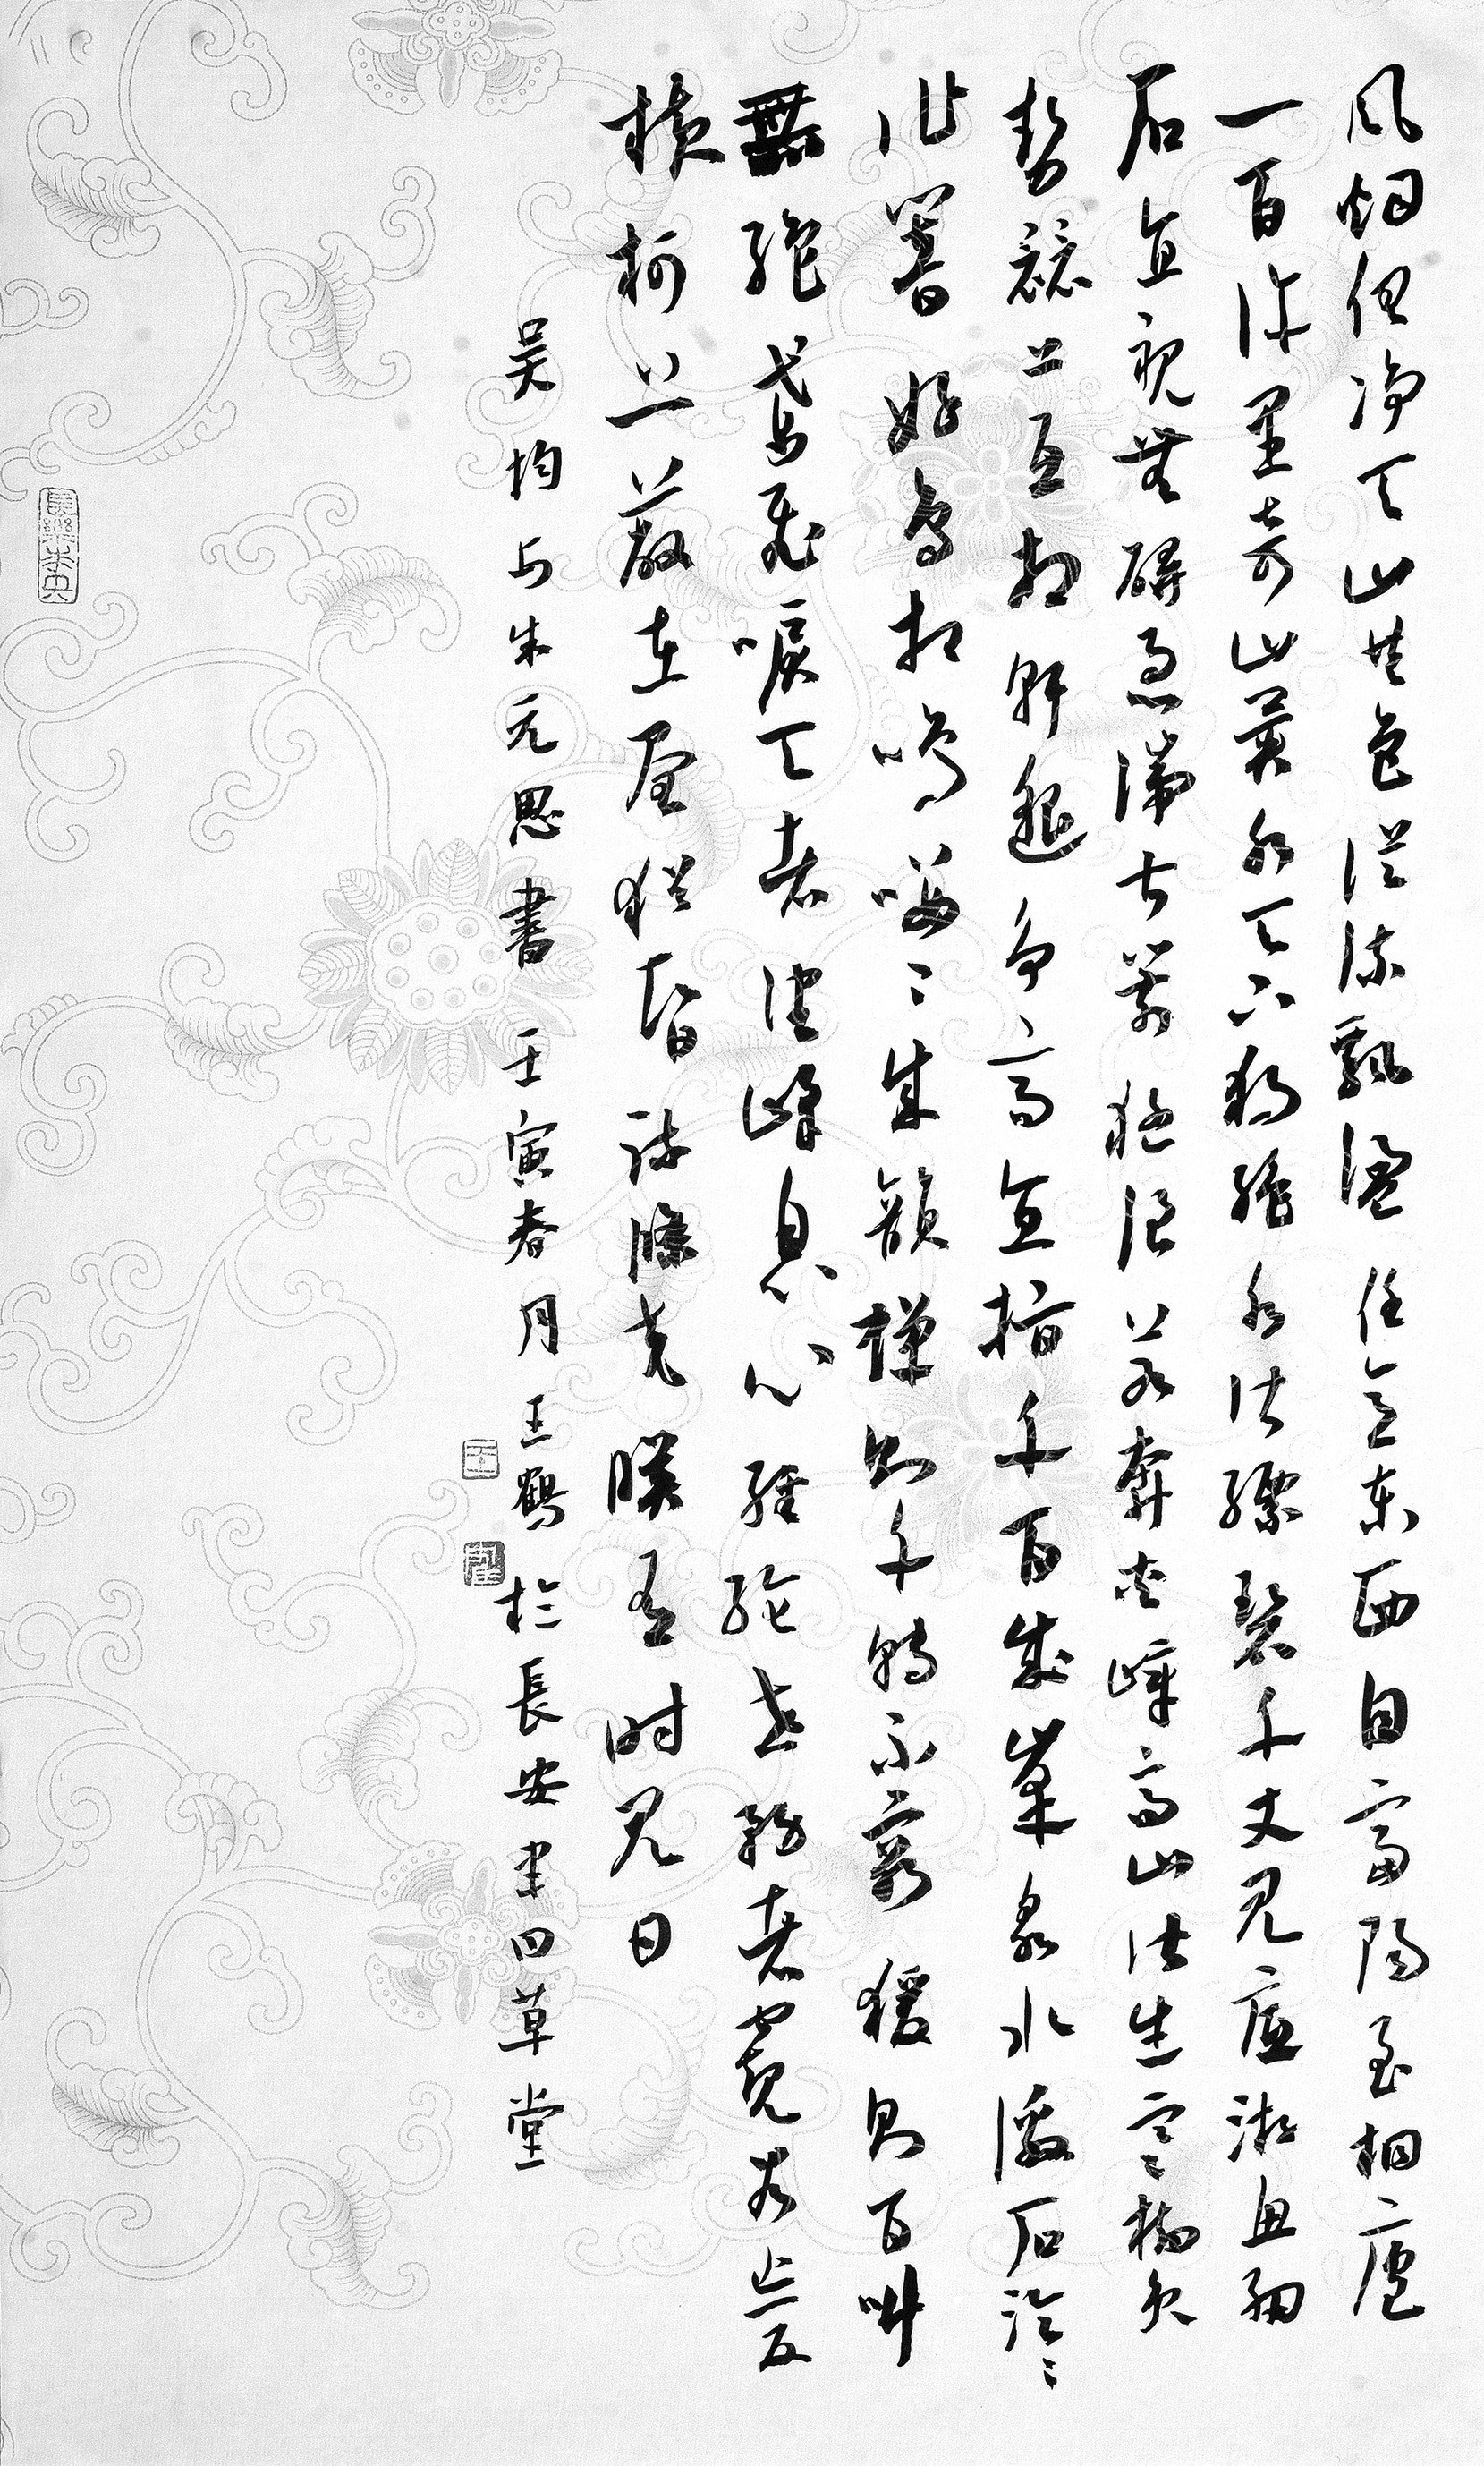 風烟俱净天山共色從流飄盪任意東西自富陽至桐廬
一百許里奇山異水天下獨絕水皆縹碧千丈見底游魚細
石直視無礙急湍甚箭猛浪若奔夾嶂高山皆生寒樹負
勢競上互相軒邈爭高直指千百成峯泉水激石泠泠
作響好鳥相鳴嚶嚶成韻蟬則千轉不窮猿則百叫
無絕鳶飛唳天者望峰息心經綸世務者窺谷忘反
橫柯上蔽在晝猶昏疎條交映有時見日
吴均与朱元思書 壬寅春月王鶴於長安聿田草堂